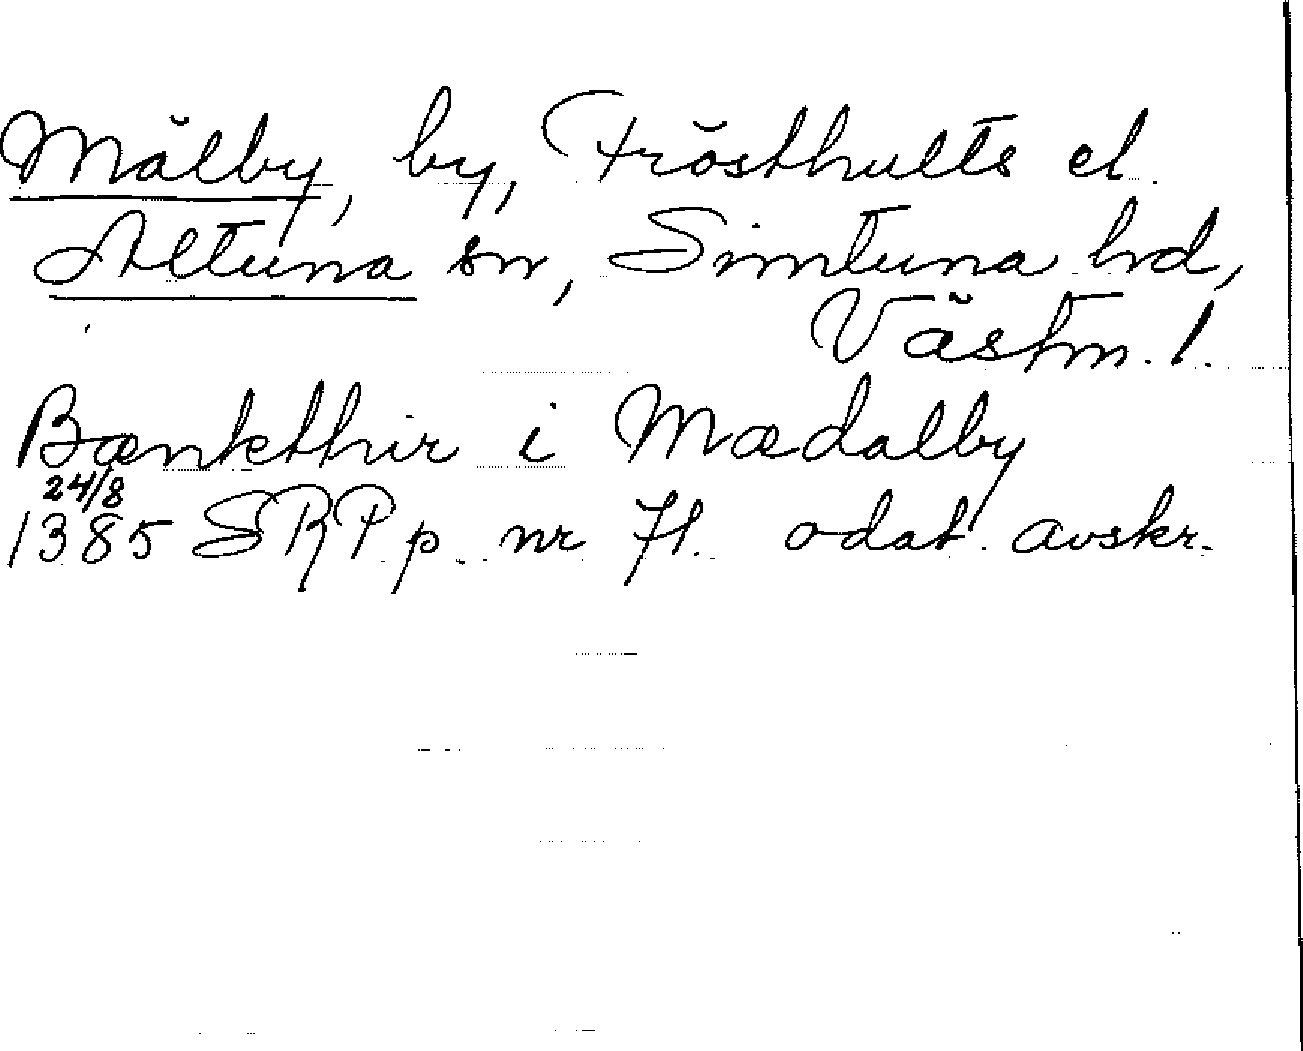 Mälby, by, Frösthults el.
Altuna sn, Simtuna hd,
Västm. l.
Bænkthir i Mædalby
24/8
1385 SRPp nr 71. odat. avskr.